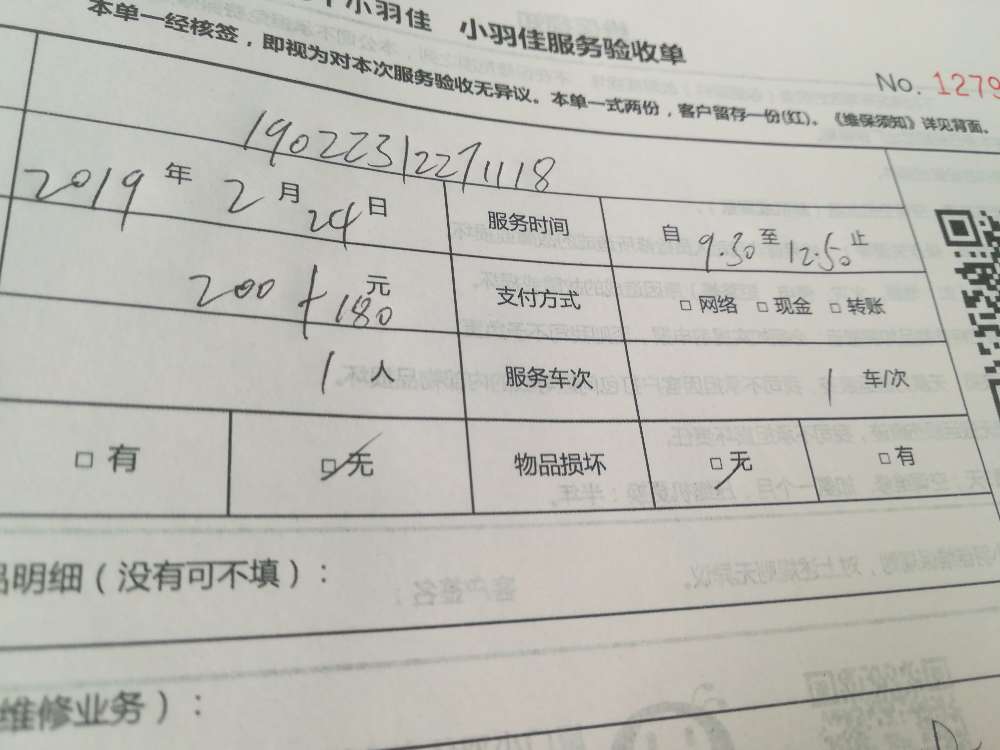 小羽佳 小羽佳服务验收单
本单一经核签，即视为对本次服务验收无异议。本单一式两份，客户留存一份(红)。《维保须知》详见背面。
No. 1279
19022312271118
2019 年 2 月 24 日 服务时间 自 9.30 至 12.50 止
200+180 元 支付方式 □ 网络 □ 现金 □ 转账
1 人 服务车次 1 车/次
□ 有 □ 无 物品损坏 □ 无 □ 有
明细（没有可不填）：
维修业务）：